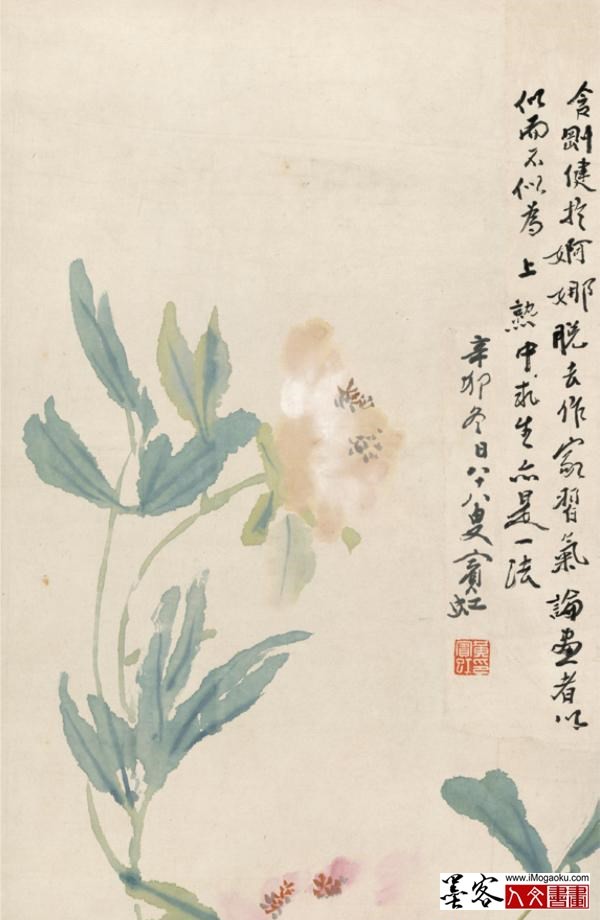 含剛健於婀娜脫去作家習氣論畫者以
似而不似為上熟中求生亦是一法
辛卯冬日八十八叟賓虹
黃賓虹印
墨客
www.iMogaoku.com
人文書畫